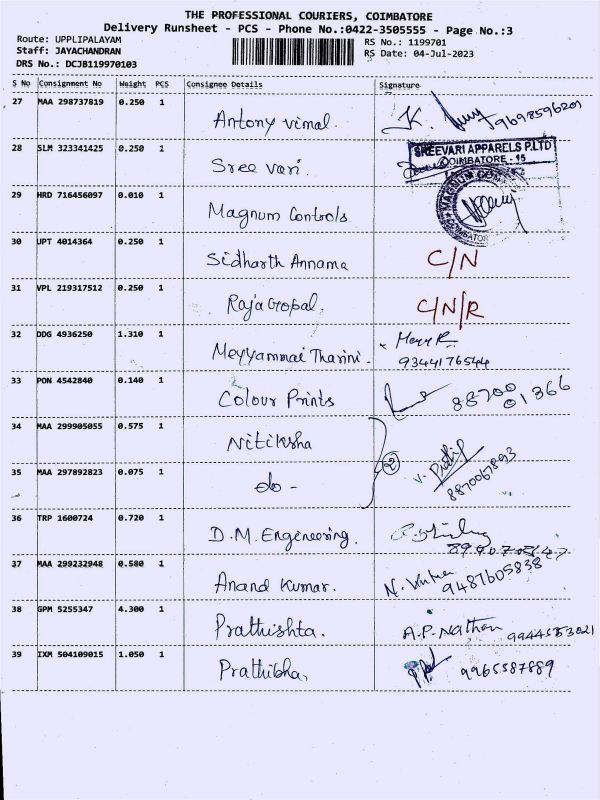 THE PROFESSIONAL COURIERS, COIMBATORE
Delivery Runsheet - PCS - Phone No.:0422-3505555 - Page No.:3
Route: UPPLIPALAYAM
RS No.: 1199701
Staff: JAYACHANDRAN
RS Date: 04-Jul-2023
DRS No.: DCJB119970103
S No Consignment No Weight PCS Consignee Details Signature
27 MAA 298737819 0.250 1 Antony Vimal. 9698596201
28 SLM 323341425 0.250 1 Sree vari. SREEVARI APPARELS P.LTD
COIMBATORE - 15
29 HRD 716456097 0.010 1 Magnum Controls MAGNUM
30 UPT 4014364 0.250 1 Sidharth Annama C/N
31 VPL 219317512 0.250 1 Raja Gopal. C/N/R
32 DDG 4936250 1.310 1 Meyyammai Tharini.
9344176544
33 PON 4542840 0.140 1 Colour Prints 88700
01366
34 MAA 299905055 0.575 1 Nitiksha
2
35 MAA 297892823 0.075 1 do - 8870067893
36 TRP 1600724 0.720 1 D.M. Engineering.
37 MAA 299232948 0.580 1 Anand Kumar. 9487605838
38 GPM 5255347 4.300 1 Prathishta. A.P. Nathan
39 IXM 504109015 1.050 1 Prathibha. 9965587889